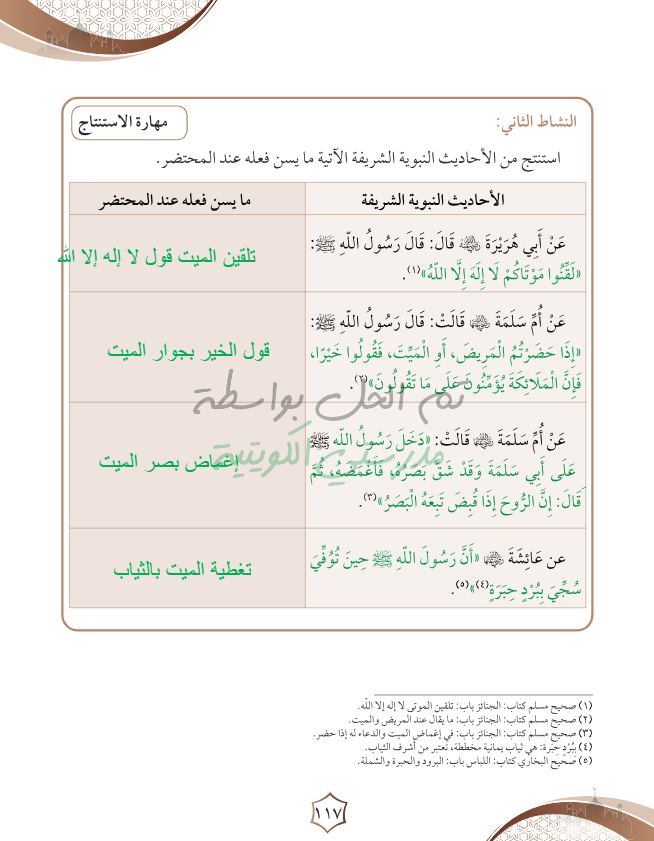 النشاط الثاني:
مهارة الاستنتاج
استنتج من الأحاديث النبوية الشريفة الآتية ما يسن فعله عند المحتضر.
الأحاديث النبوية الشريفة
ما يسن فعله عند المحتضر
عَنْ أَبِي هُرَيْرَةَ رضي الله عنه قَالَ: قَالَ رَسُولُ اللَّهِ ﷺ:
«لَقِّنُوا مَوْتَاكُمْ لَا إِلَهَ إِلَّا اللَّهُ»(١).
تلقين الميت قول لا إله إلا الله
عَنْ أُمِّ سَلَمَةَ رضي الله عنها قَالَتْ: قَالَ رَسُولُ اللَّهِ ﷺ:
«إِذَا حَضَرْتُمُ الْمَرِيضَ، أَوِ الْمَيِّتَ، فَقُولُوا خَيْرًا،
فَإِنَّ الْمَلَائِكَةَ يُؤَمِّنُونَ عَلَى مَا تَقُولُونَ»(٢).
قول الخير بجوار الميت
تم الحل بواسطة
عَنْ أُمِّ سَلَمَةَ رضي الله عنها قَالَتْ: «دَخَلَ رَسُولُ اللَّهِ ﷺ
عَلَى أَبِي سَلَمَةَ وَقَدْ شَقَّ بَصَرُهُ، فَأَغْمَضَهُ، ثُمَّ
قَالَ: إِنَّ الرُّوحَ إِذَا قُبِضَ تَبِعَهُ الْبَصَرُ»(٣).
إغماض بصر الميت
مدرستي الكويتية
عن عَائِشَةَ رضي الله عنها «أَنَّ رَسُولَ اللَّهِ ﷺ حِينَ تُوُفِّيَ
سُجِّيَ بِبُرْدٍ حِبَرَةٍ(٤)»(٥).
تغطية الميت بالثياب
(١) صحيح مسلم كتاب: الجنائز باب: تلقين الموتى لا إله إلا الله.
(٢) صحيح مسلم كتاب: الجنائز باب: ما يقال عند المريض والميت.
(٣) صحيح مسلم كتاب: الجنائز باب: في إغماض الميت والدعاء له إذا حضر.
(٤) بِبُرْدٍ حِبَرَة: هي ثياب يمانية مخططة، تعتبر من أشرف الثياب.
(٥) صحيح البخاري كتاب: اللباس باب: البرود والحبرة والشملة.
١١٧